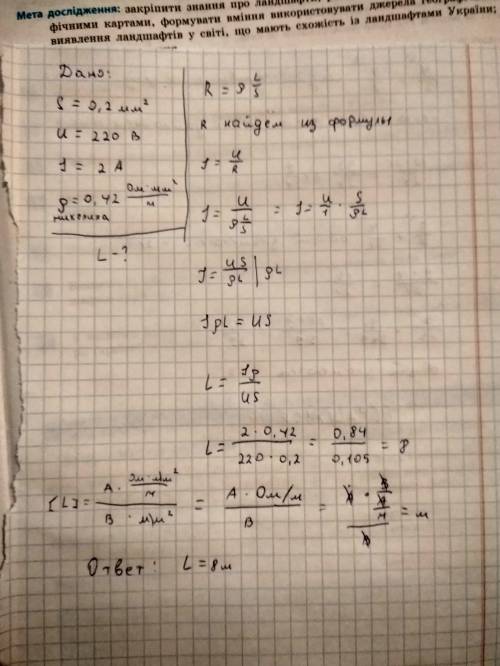 Мета дослідження: закріпити знання про ландшафти,
фічними картами, формувати вміння використовувати джерела
виявлення ландшафтів у світі, що мають схожість із ландшафтами України;
Дано:
S = 0,2 мм²
U = 220 В
I = 2 А
ρ = 0,42 Ом·мм²/м
никелина
L - ?
R = ρ L/S
R найдем из формулы
I = U/R
I = U/(ρ L/S) = I = U/1 · S/ρL
I = US/ρL | ρL
IρL = US
L = Iρ/US
L = 2 · 0,42/220 · 0,2 = 0,84/0,105 = 8
[L] = А · Ом·мм²/м / В · мм² = А · Ом/м / В = В · В/В/м / В = м
Ответ: L = 8м